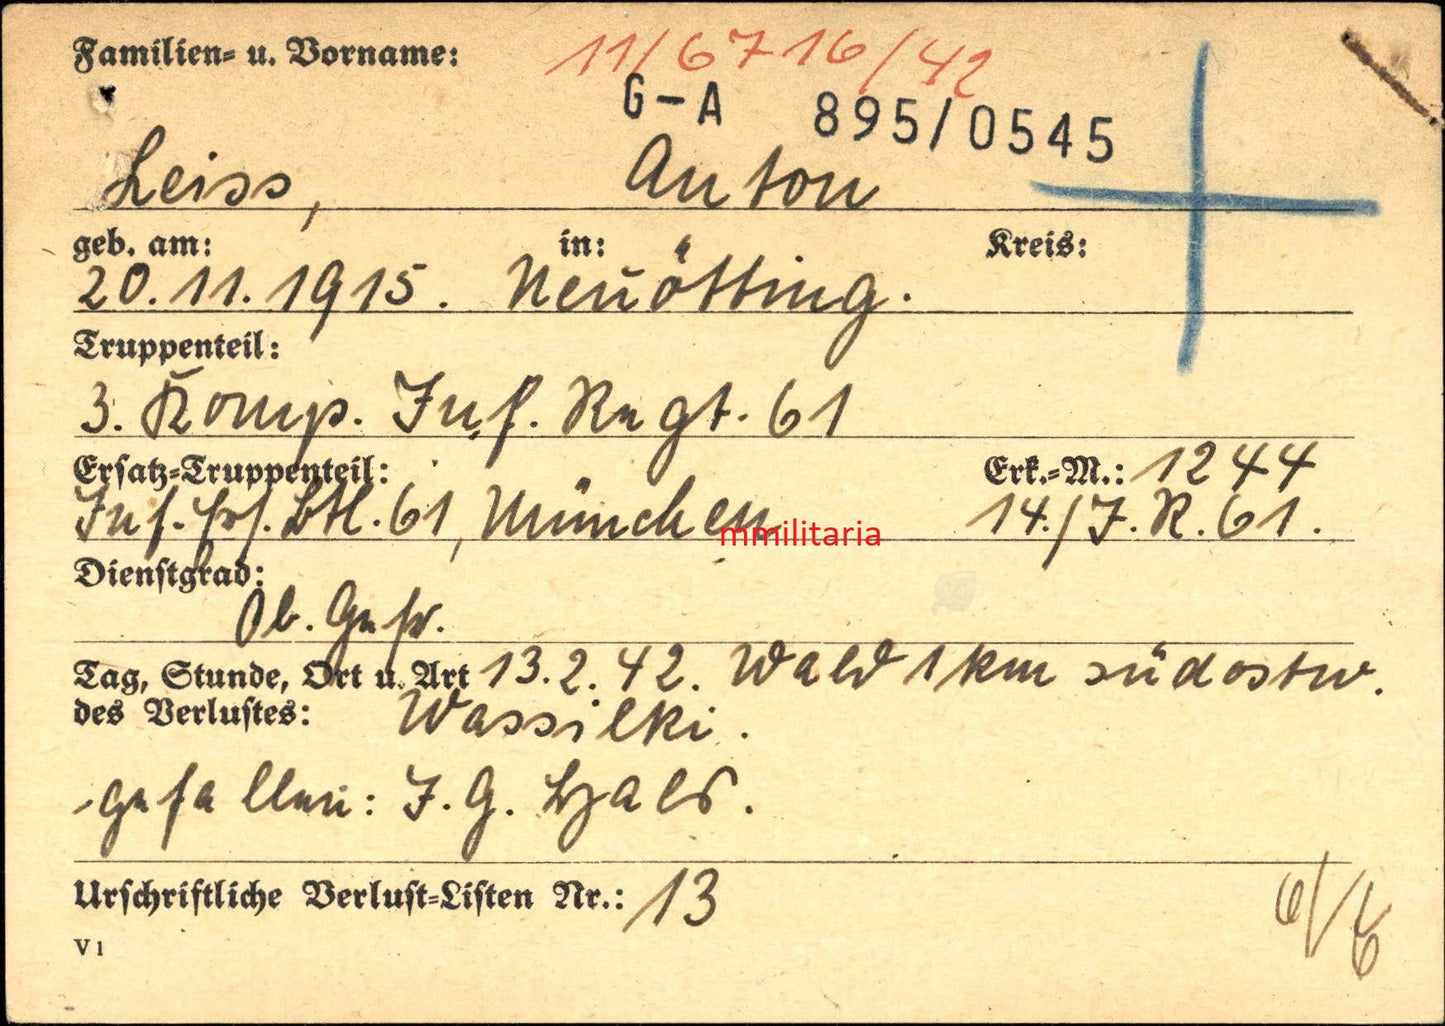 Familien- u. Vorname: 11/6716/42
G-A 895/0545
Leiss, Anton
geb. am: in: Kreis:
20.11.1915. Neuötting.
Truppenteil:
3. Komp. Inf. Regt. 61
Ersatz-Truppenteil: Erk.-M.: 1244
Inf. Ers. Btl. 61, München 14./J.R. 61.
mmilitaria
Dienstgrad:
Ob. Gefr.
Tag, Stunde, Ort u. Art 13.2.42. Wald 1 km südostw.
des Verlustes: Wassilki.
gefallen: J.G. Hals.
Urschriftliche Verlust-Listen Nr.: 13
V 1